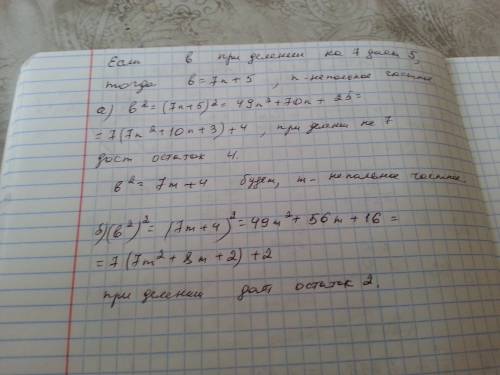 Если в при делении на 7 дает 5,
тогда в=7n+5, n-неполное частное
а) в²=(7n+5)²=49n²+70n+25=
=7(7n²+10n+3)+4, при делен на 7
даст остаток 4.
в²=7m+4 будет, m- неполное частное.
б)(в²)²=(7m+4)²=49m²+56m+16=
=7(7m²+8m+2)+2
при делении даст остаток 2.